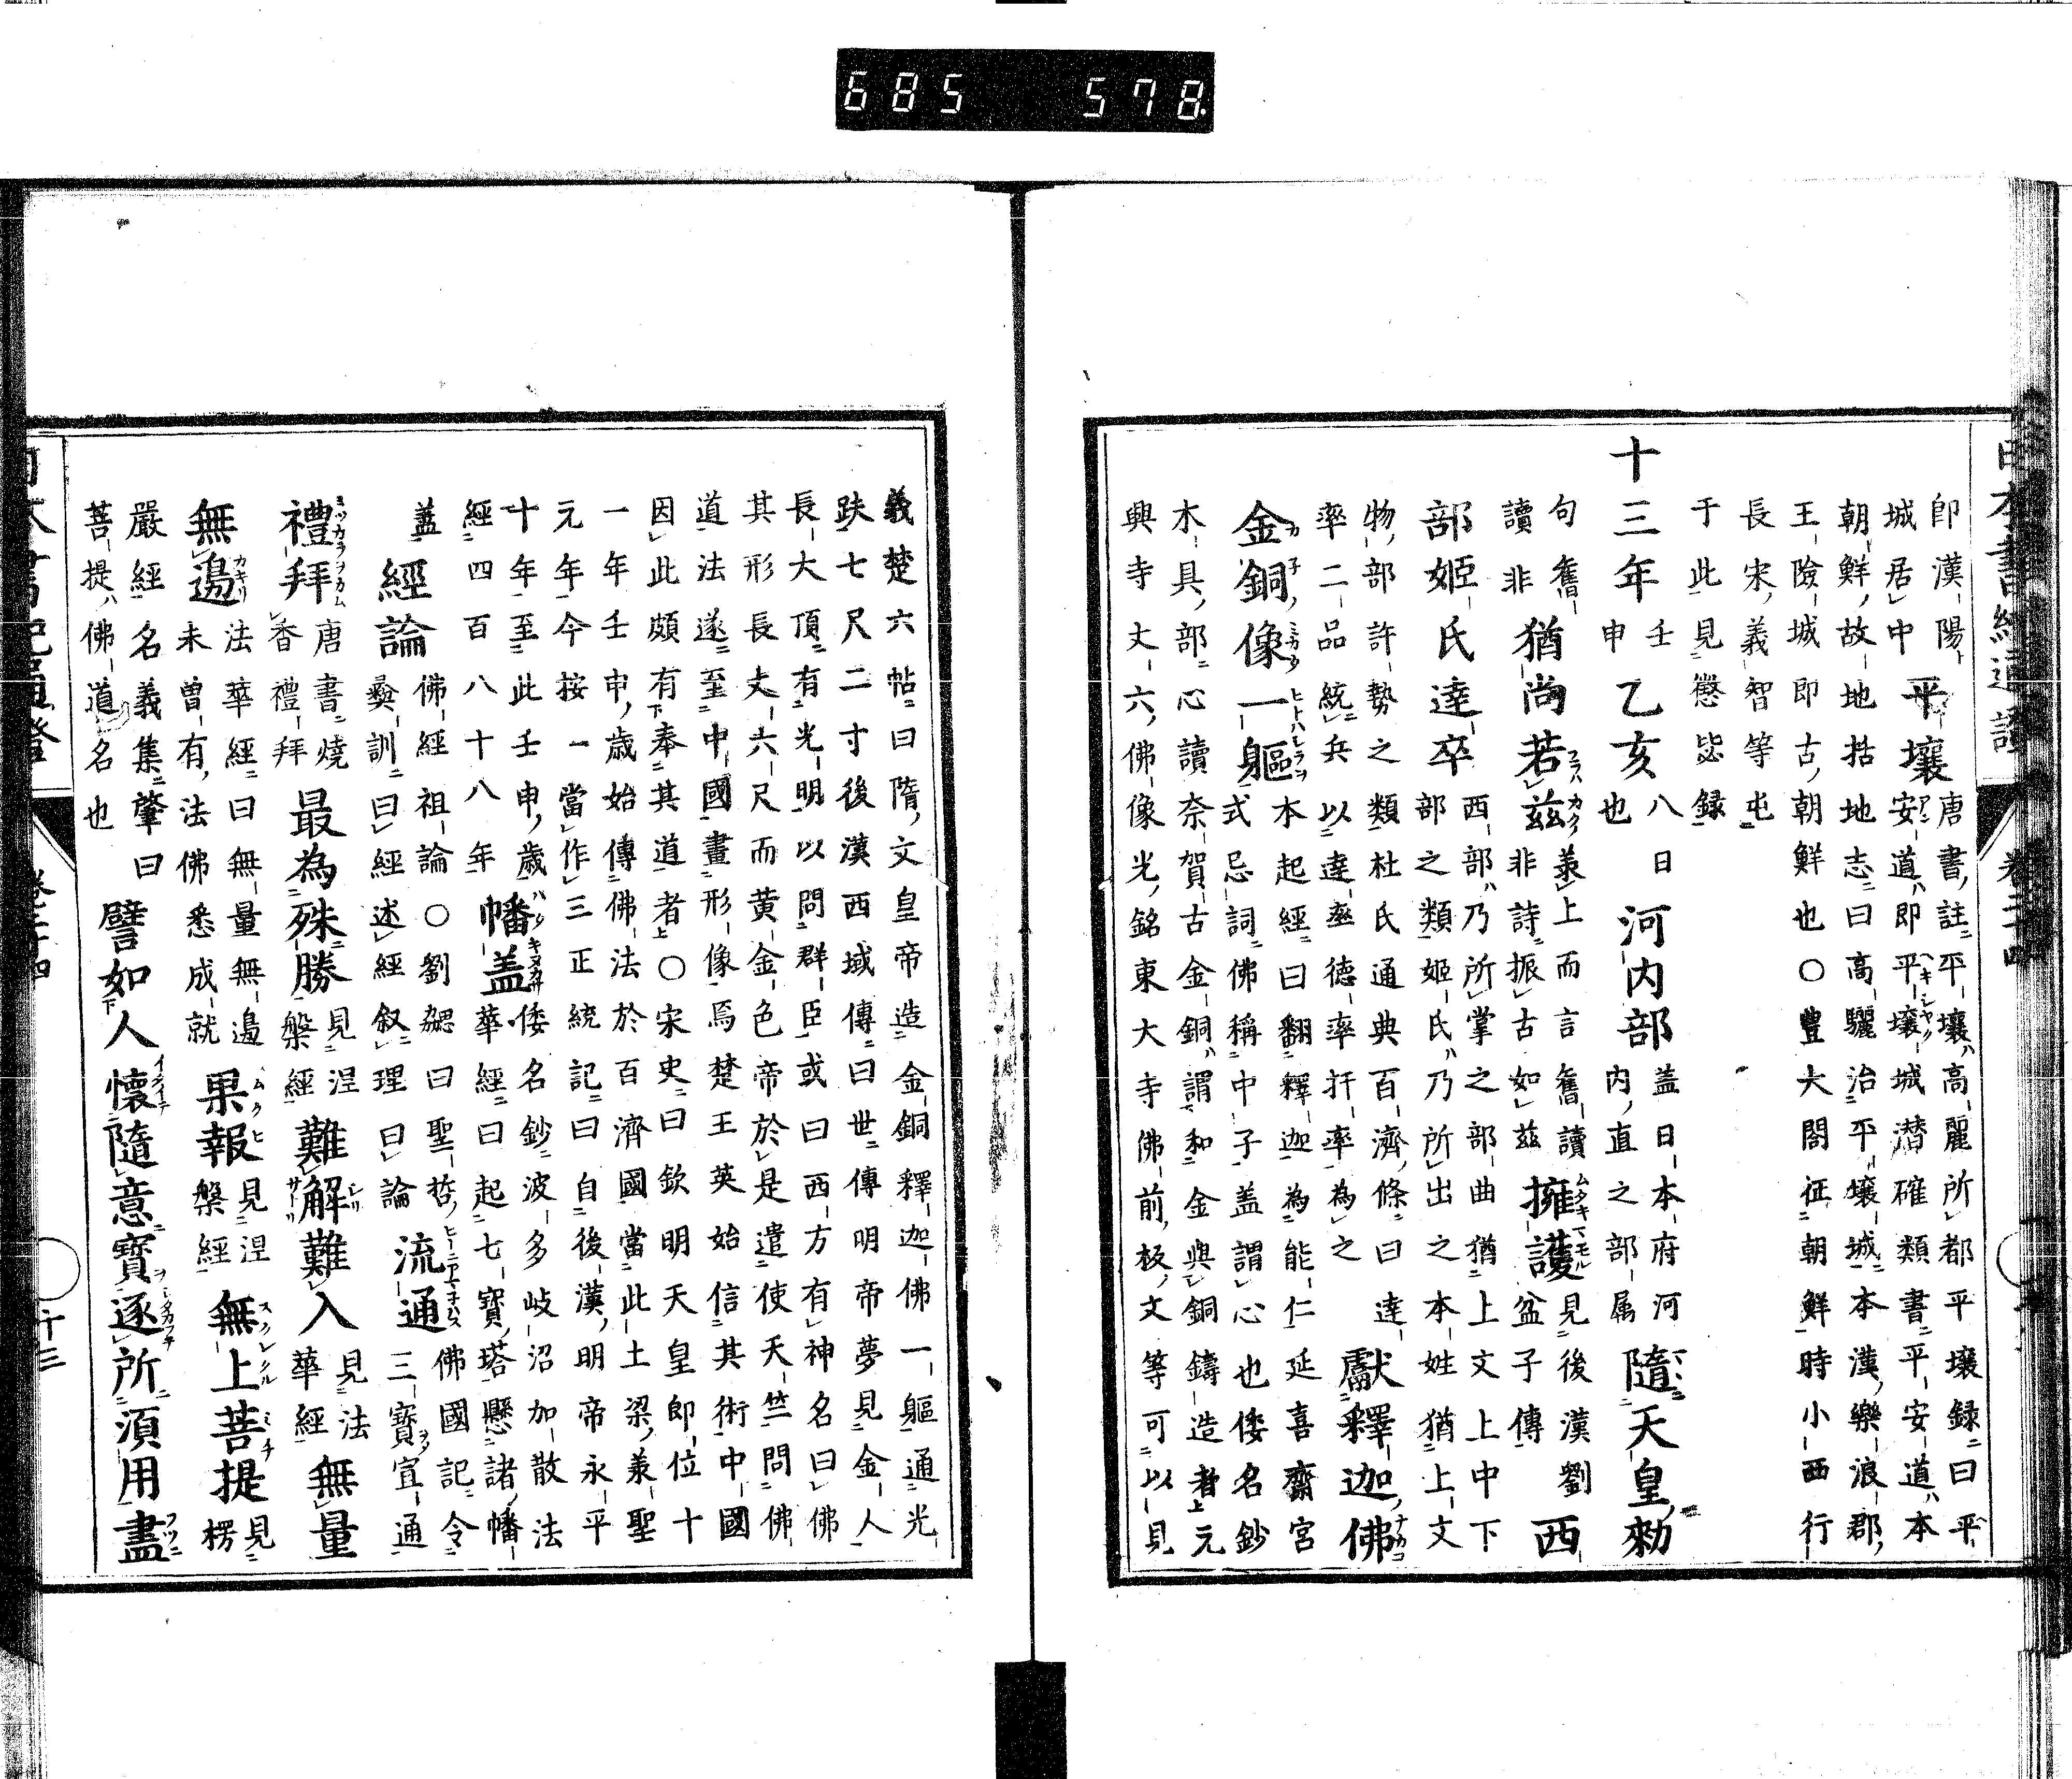 685 578
即漢陽城居中平壤唐書註平壤高麗所都平壤録曰平
安道即平壤城潜確類書平安道本
朝鮮故地括地志曰高驪治平壤城本漢樂浪郡
王險城即古朝鮮也〇豐大閤征朝鮮時小西行
長宋義智等屯
于此見懲毖録
十三年壬申乙亥八日也河内部蓋日本府河内直之部属隨天皇勅
句舊讀非猶尚若茲兼上而言舊讀非詩振古如茲擁護見後漢劉盆子傳西
部姬氏達卒西部乃所掌之部曲猶上文上中下部之類姬氏乃所出之本姓猶上文
物部許勢之類杜氏通典百濟條曰達率二品統兵以達率德率扞率為之獻釋迦佛
金銅像一軀本起經曰翻釋迦為能仁延喜齋宮式忌詞佛稱中子蓋謂心也倭名鈔
木具部心讀奈賀古金銅謂和金與銅鑄造者元
興寺丈六佛像光銘東大寺佛前板文等可以見
義楚六帖曰隋文皇帝造金銅釋迦佛一軀通光
趺七尺二寸後漢西域傳曰世傳明帝夢見金人
長大頂有光明以問群臣或曰西方有神名曰佛
其形長丈六尺而黄金色帝於是遣使天竺問佛
道法遂至中國畫形像焉楚王英始信其術中國
因此頗有奉其道者〇宋史曰欽明天皇即位十
一年壬申歲始傳佛法於百濟國當此土梁承聖
元年今按一當作三正統記曰自後漢明帝永平
十年至此壬申歲
經四百八十八年幡盖倭名鈔波多岐沼加散法華經曰起七寶塔懸諸幡
蓋經論佛經祖論〇劉勰曰聖哲彜訓曰經述經叙理曰論流通佛國記令三寶宣通
禮拜唐書燒香禮拜最為殊勝見涅槃經難解難入見法華經無量
無邊法華經曰無量無邊未曾有法佛悉成就果報見涅槃經無上菩提見楞
嚴經名義集肇曰
菩提佛道名也譬如人懷隨意寶逐所須用盡